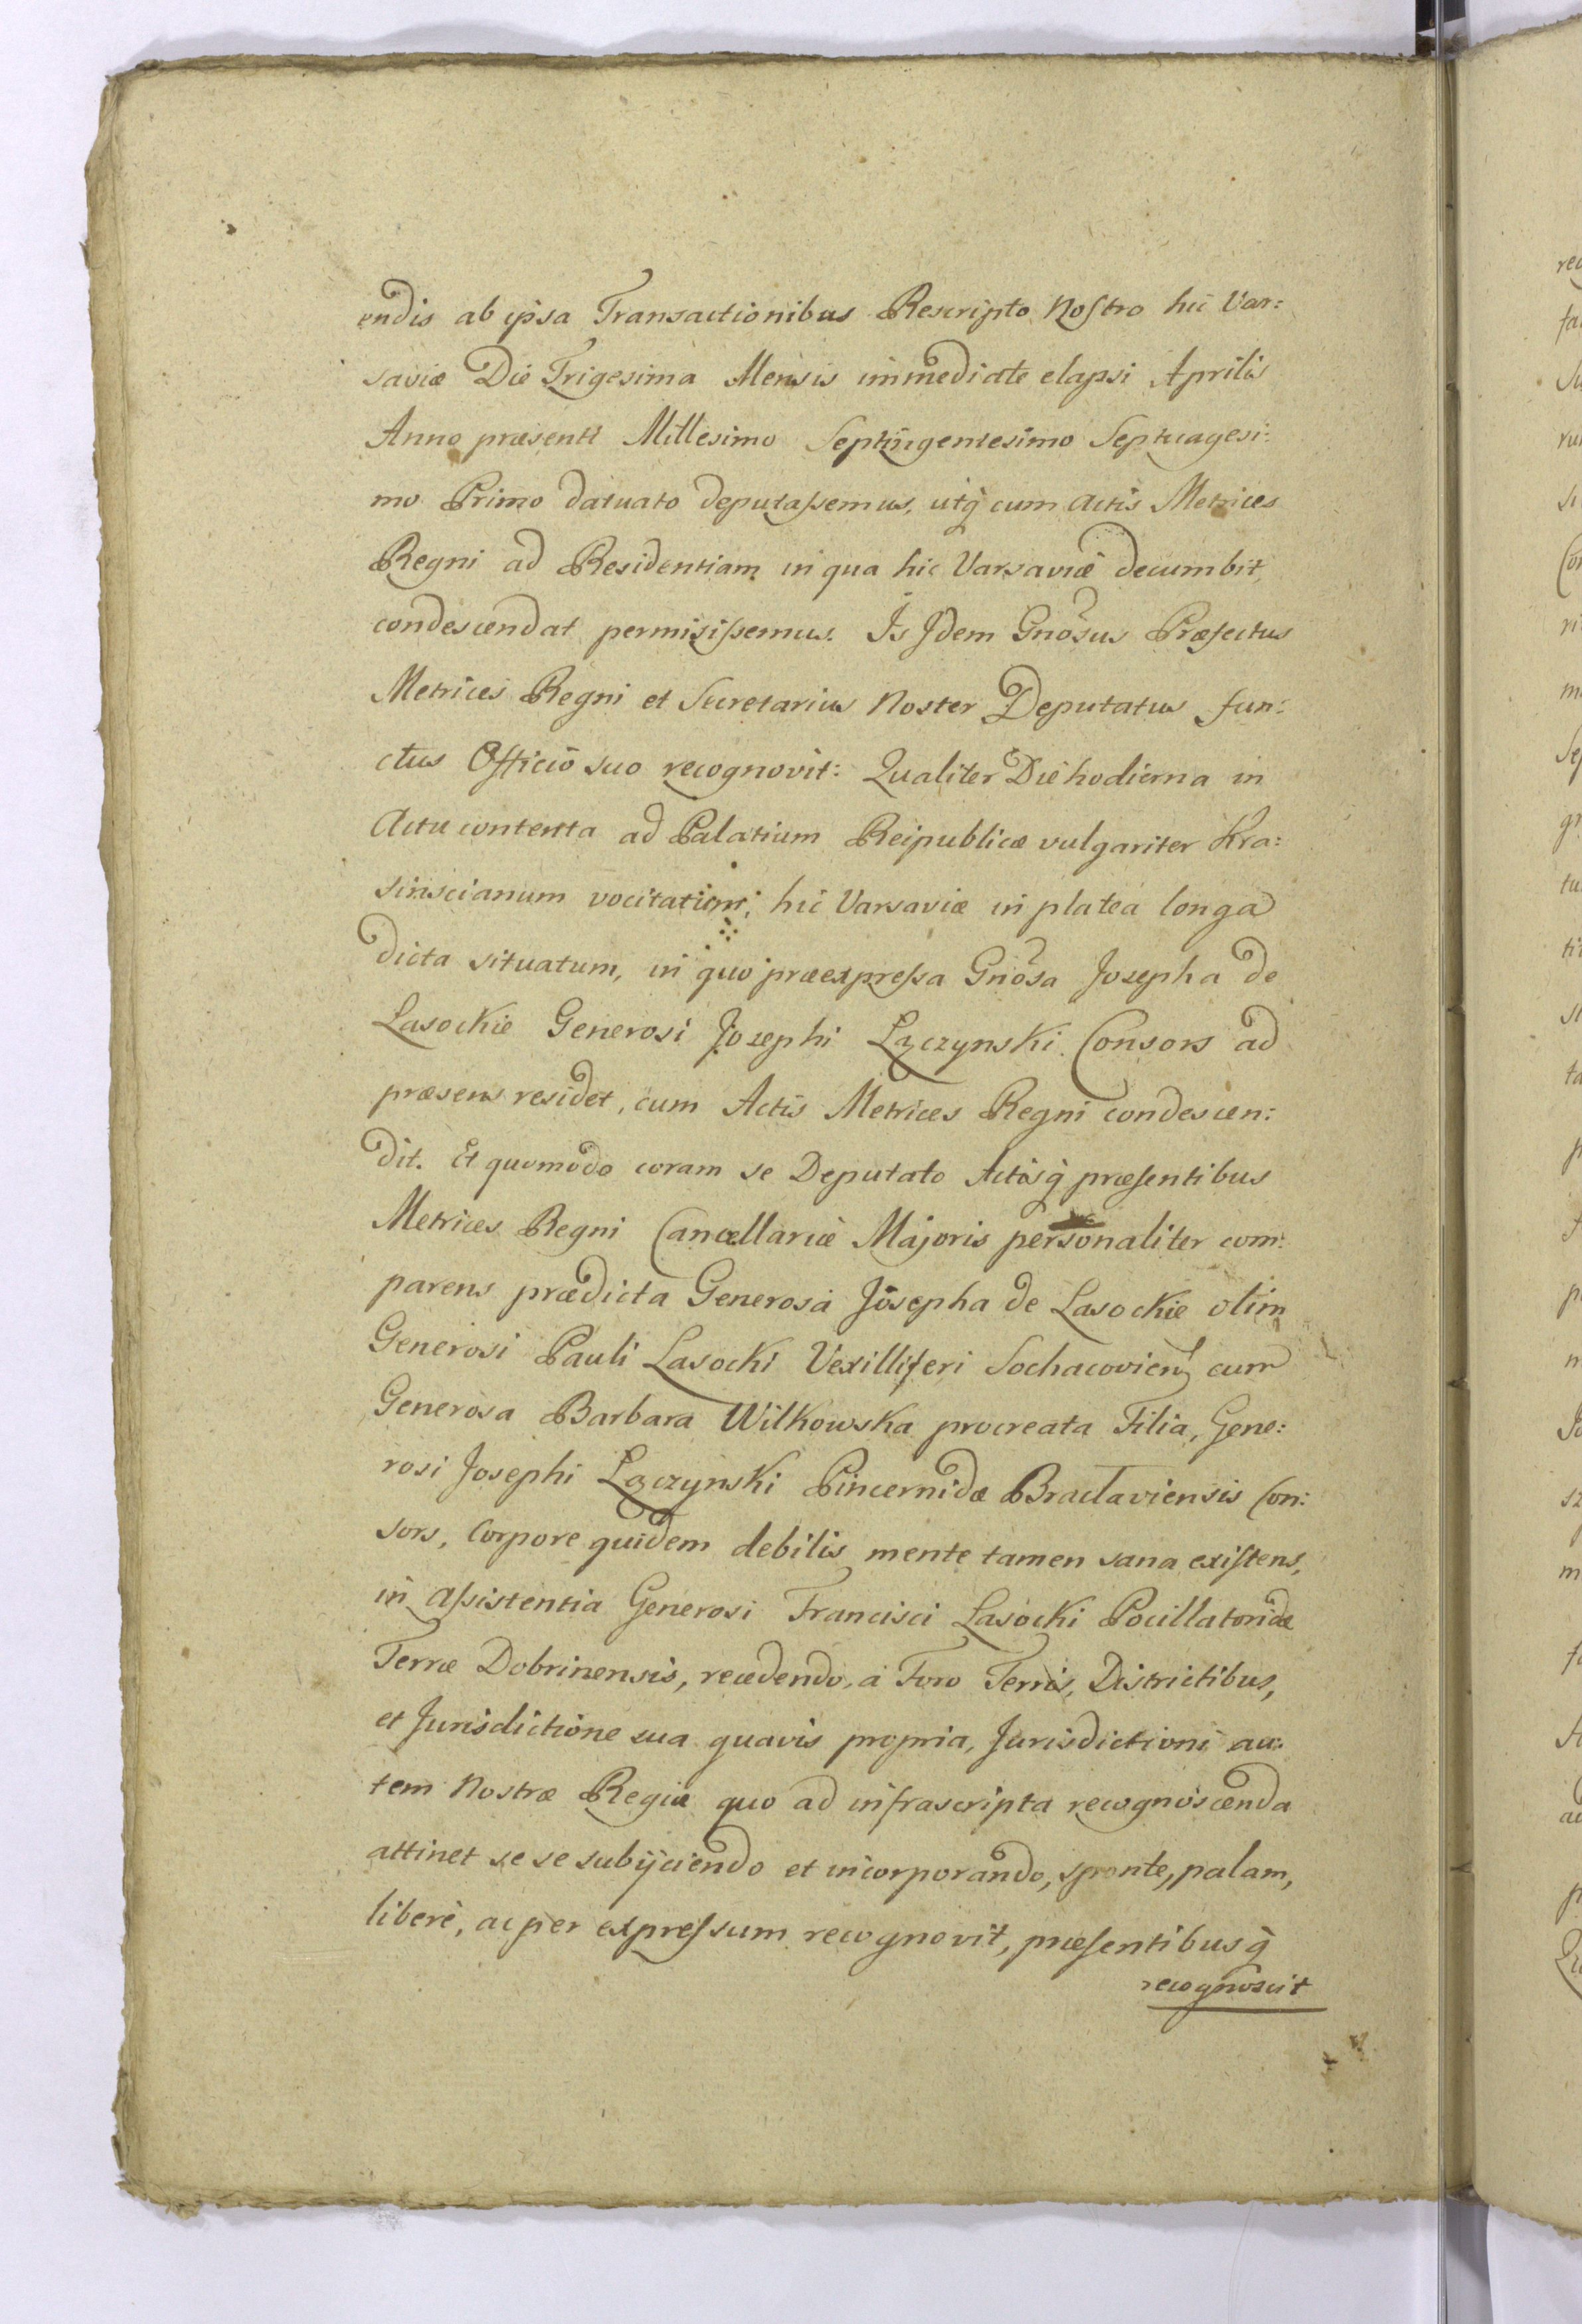 endis ab ipsa Transactionibus Rescripto Nostro hic Var:
saviæ Die Trigesima Mensis immediate elapsi Aprilis
Anno præsenti Millesimo Septingentesimo Septuagesi:
mo Primo datuato deputassemus, utq̃ cum Actis Metrices
Regni ad Residentiam in qua hic Varsaviæ decumbit,
condescendat permisissemus. Is Idem Gnõsus Præfectus
Metrices Regni et Secretarius Noster Deputatus fun:
ctus Officio suo recognovit: Qualiter Die hodierna in
Actu contenta ad Palatium Reipublicæ vulgariter Kra:
sinscianum vocitatum, hic Varsaviæ in platea longa
dicta situatum, in quo præexpressa Gnõsa Josepha de
Lasockie Generosi Josephi Łączynski Consors ad
præsens residet, cum Actis Metrices Regni condescen:
dit. Et quomodo coram se Deputato Actisq̃ præsentibus
Metrices Regni Cancellariæ Majoris personaliter com:
parens prædicta Generosa Josepha de Lasockie olim
Generosi Pauli Lasocki Vexilliferi Sochacovien̄ cum
Generosa Barbara Wilkowska procreata Filia, Gene:
rosi Josephi Łączynski Pincernidæ Braclaviensis Con:
sors, Corpore quidem debilis mente tamen sana existens,
in Assistentia Generosi Francisci Lasocki Pocillatoridæ
Terræ Dobrinensis, recedendo, a Foro Terris, Districtibus,
et Jurisdictione sua quavis propria, Jurisdictioni au:
tem Nostræ Regiæ quo ad infrascripta recognoscenda
attinet se se subijciendo et incorporando, sponte, palam,
liberè, ac per expressum recognovit, præsentibusq̃
recognoscit